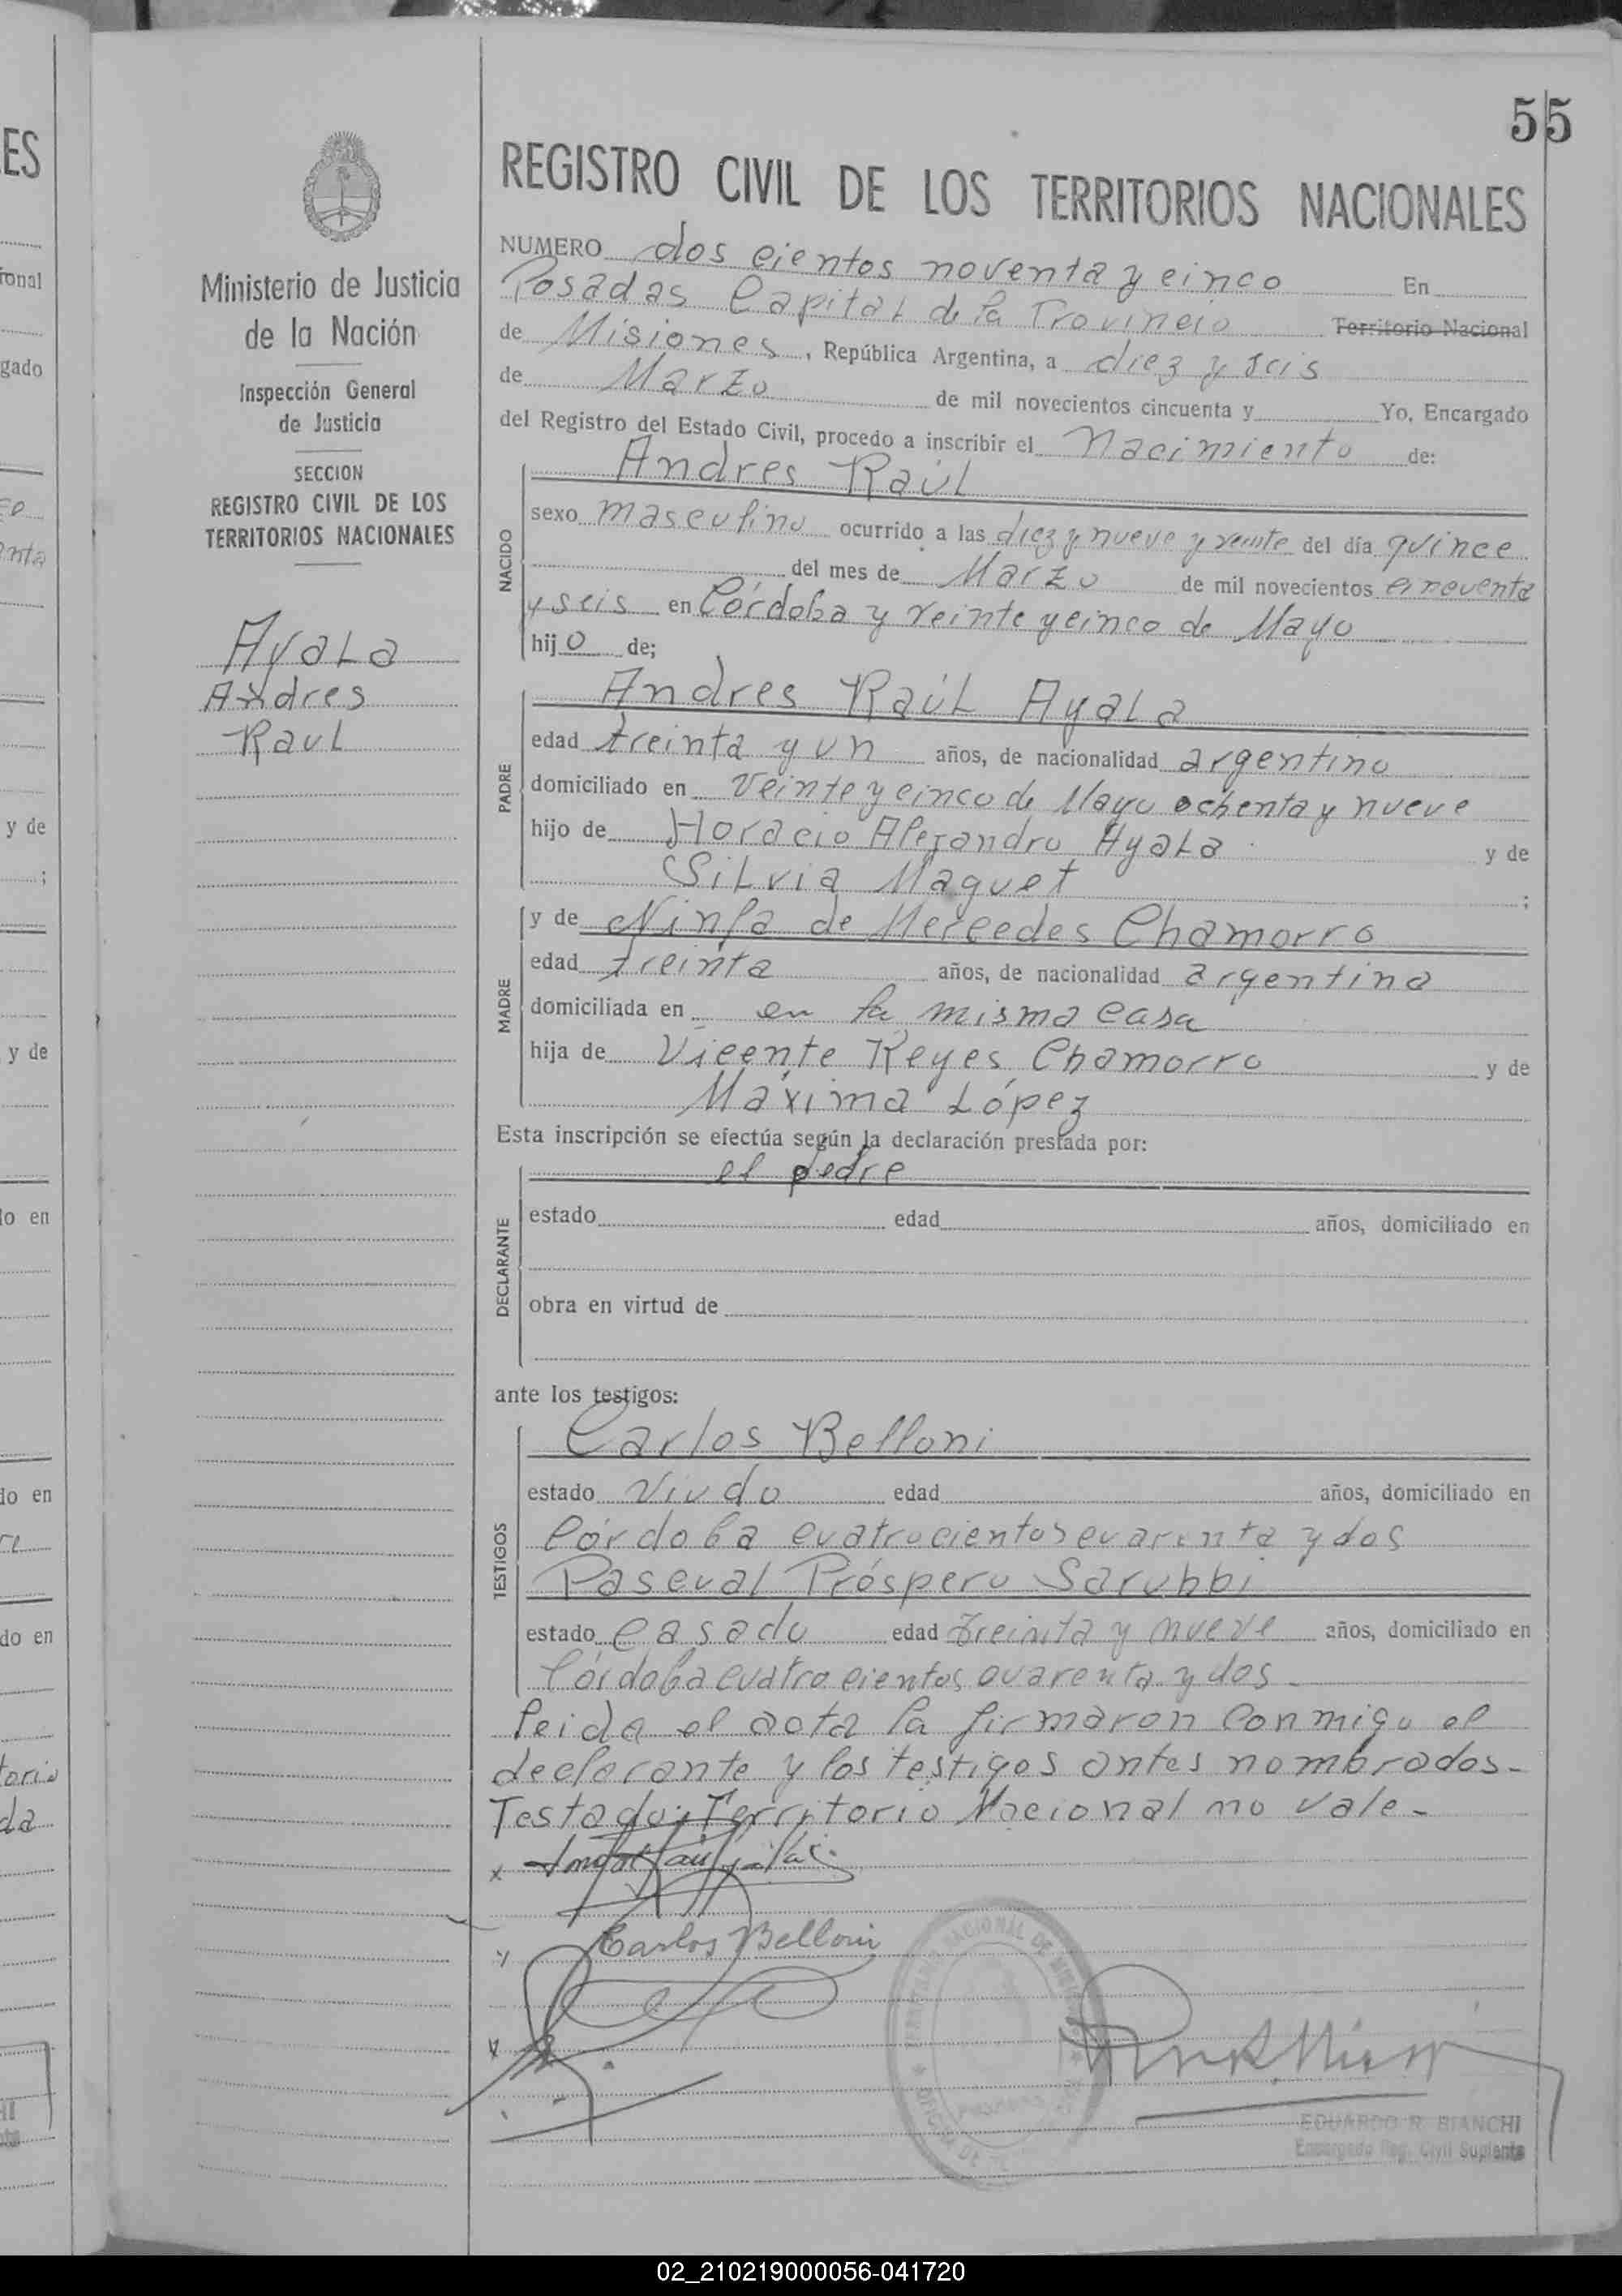 55
ES
ional
gado
y de
y de
lo en
do en
do en
da
Ministerio de Justicia
de la Nación
Inspección General
de Justicia
SECCION
REGISTRO CIVIL DE LOS
TERRITORIOS NACIONALES
Ayala
Andres
Raul
REGISTRO CIVIL DE LOS TERRITORIOS NACIONALES
NUMERO dos cientos noventa y cinco En
Posadas Capital de la Provincia Territorio Nacional
de Misiones, República Argentina, a diez y seis
de Marzo de mil novecientos cincuenta y Yo, Encargado
del Registro del Estado Civil, procedo a inscribir el Nacimiento de:
NACIDO
Andres Raúl
sexo masculino ocurrido a las diez y nueve y veinte del día quince
del mes de Marzo de mil novecientos cincuenta
y seis en Córdoba y veinte y cinco de Mayo
hijo de;
PADRE
Andres Raúl Ayala
edad treinta y un años, de nacionalidad argentino
domiciliado en Veinte y cinco de Mayo ochenta y nueve
hijo de Horacio Alejandro Ayala y de
Silvia Maguet ;
MADRE
y de Ninfa de Mercedes Chamorro
edad treinta años, de nacionalidad argentina
domiciliada en en la misma casa
hija de Vicente Reyes Chamorro y de
Máxima López
Esta inscripción se efectúa según la declaración prestada por:
DECLARANTE
el padre
estado edad años, domiciliado en
obra en virtud de
ante los testigos:
TESTIGOS
Carlos Belloni
estado Viudo edad años, domiciliado en
Córdoba cuatrocientos cuarenta y dos
Pascual Próspero Sarubbi
estado casado edad treinta y nueve años, domiciliado en
Córdoba cuatro cientos cuarenta y dos -
leida el acta la firmaron conmigo el
declarante y los testigos antes nombrados.-
Testado: Territorio Nacional no vale.-
x
Carlos Belloni
EDUARDO R. BIANCHI
Encargado Reg. Civil Suplente
02_210219000056-041720